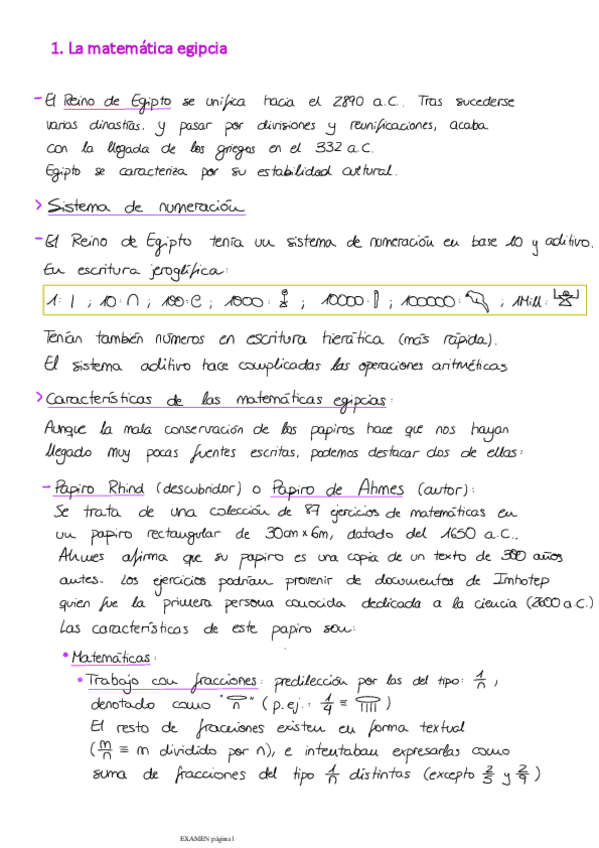 1. La matemática egipcia
- El Reino de Egipto se unifica hacia el 2890 a.C.. Tras sucederse
varias dinastías. y pasar por divisiones y reunificaciones, acaba
con la llegada de los griegos en el 332 a.C.
Egipto se caracteriza por su estabilidad cultural.
> Sistema de numeración
- El Reino de Egipto tenía un sistema de numeración en base 10 y aditivo.
En escritura jeroglífica:
1: | ; 10: ∩ ; 100: ; 1000: ; 10000: ; 100000: ; 1Mill:
Tenían también números en escritura hierática (más rápida).
El sistema aditivo hace complicadas las operaciones aritméticas
> Características de las matemáticas egipcias:
Aunque la mala conservación de los papiros hace que nos hayan
llegado muy pocas fuentes escritas, podemos destacar dos de ellas:
- Papiro Rhind (descubridor) o Papiro de Ahmes (autor):
Se trata de una colección de 87 ejercicios de matemáticas en
un papiro rectangular de 30cm x 6m, datado del 1650 a.C..
Ahmes afirma que su papiro es una copia de un texto de 300 años
antes. Los ejercicios podrían provenir de documentos de Imhotep
quien fue la primera persona conocida dedicada a la ciencia (2600 a.C.)
Las características de este papiro son:
• Matemáticas:
• Trabajo con fracciones: predilección por las del tipo: 1/n,
denotado como "n" (p.ej.: 1/4 ≡ )
El resto de fracciones existen en forma textual
(m/n ≡ m dividido por n), e intentaban expresarlas como
suma de fracciones del tipo 1/n distintas (excepto 2/3 y )
EXAMEN página 1